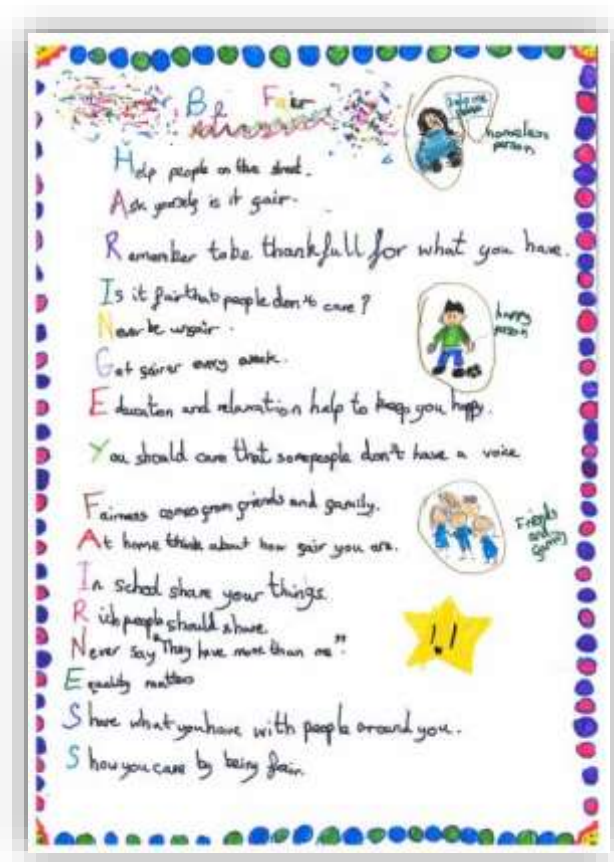 B Fair
homeless person
Help people on the street.
Ask yourself is it gair.
Remember to be thankfull for what you have.
Is it fair that people don't care?
Never be ungair.
happy person
Get gairer every week.
Education and relaxation help to keep you happy.
You should care that some people don't have a voice
Fairness comes grom griends and gamily.
At home think about how gair you are.
Friends and gamily
In school share your things.
Rich people should share.
Never say "They have more than me".
Equality matters
Share what you have with people around you.
Show you care by being fair.